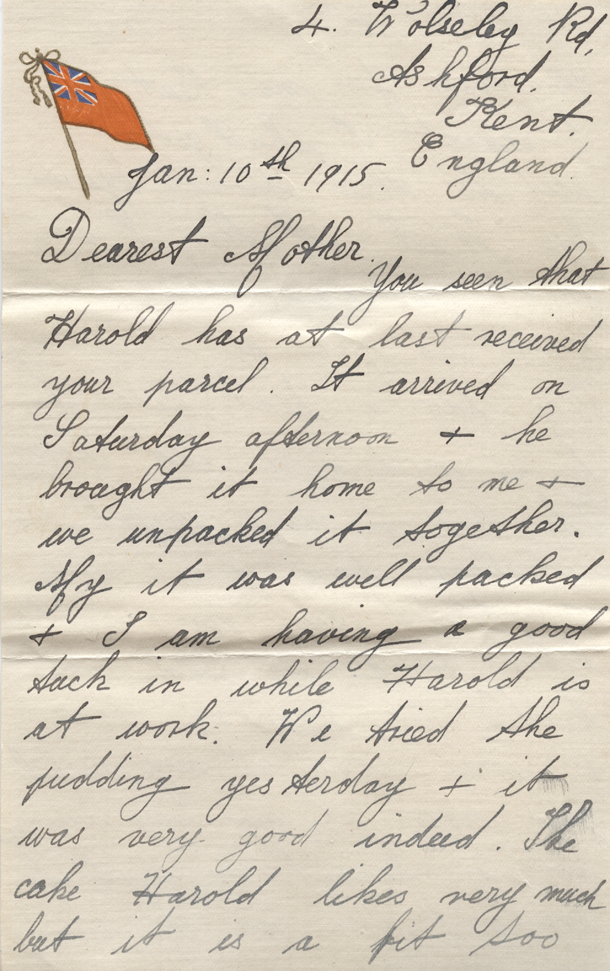 4. Wolseley Rd,
Ashford.
Kent.
England.
Jan: 10th 1915.
Dearest Mother.
You seen that
Harold has at last received
your parcel. It arrived on
Saturday afternoon + he
brought it home to me +
we unpacked it together.
My it was well packed
+ I am having a good
tuck in while Harold is
at work. We tried the
pudding yesterday + it
was very good indeed. The
cake Harold likes very much
but it is a bit too